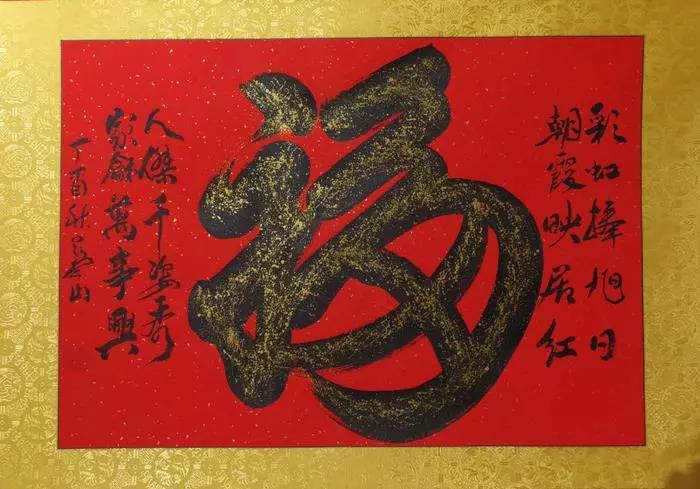 彩虹捧旭日
朝霞映居红
福
人傑千姿秀
家龢萬事興
丁酉秋山